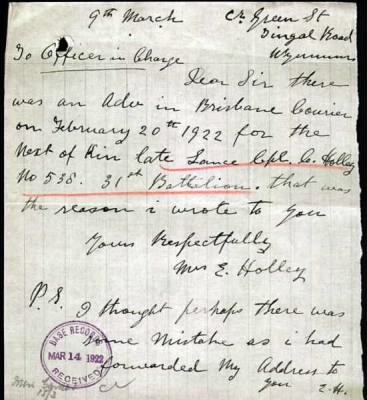 9th March
Cr Green St
Dingal Road
Wynnum
To Officer in Charge
Dear Sir there
was an Adv in Brisbane Courier
on February 20th 1922 for the
Next of Kin late Lance Cpl. C. Holley
No 538. 31st Battalion. that was
the reason i wrote to you
Yours Respectfully
Mrs E. Holley
P.S. I thought perhaps there was
some Mistake as i had
forwarded My Address to
you E.H.
BASE RECORDS
MAR 14 1922
RECEIVED
15/3